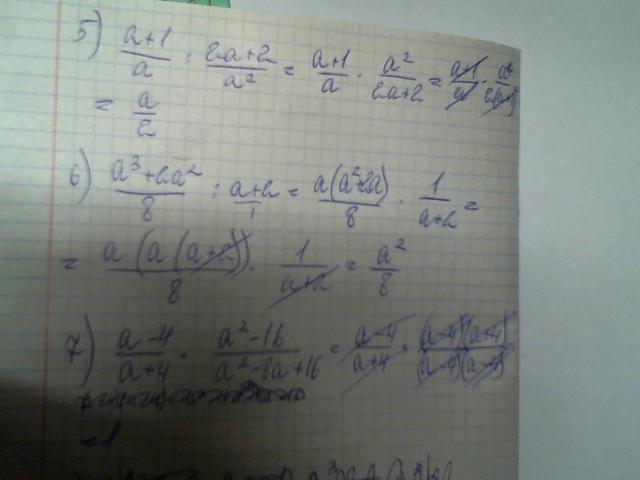 5) (a+1)/a : (2a+2)/a² = (a+1)/a · a²/(2a+2) = (a+1)/a · a²/2(a+1)
= a/2
6) (a³+2a²)/8 : (a+2)/1 = a(a²+2a)/8 · 1/(a+2) =
= a(a(a+2))/8 · 1/(a+2) = a²/8
7) (a-4)/(a+4) · (a²-16)/(a²-8a+16) = (a-4)/(a+4) · (a-4)(a+4)/(a-4)(a-4)
=1